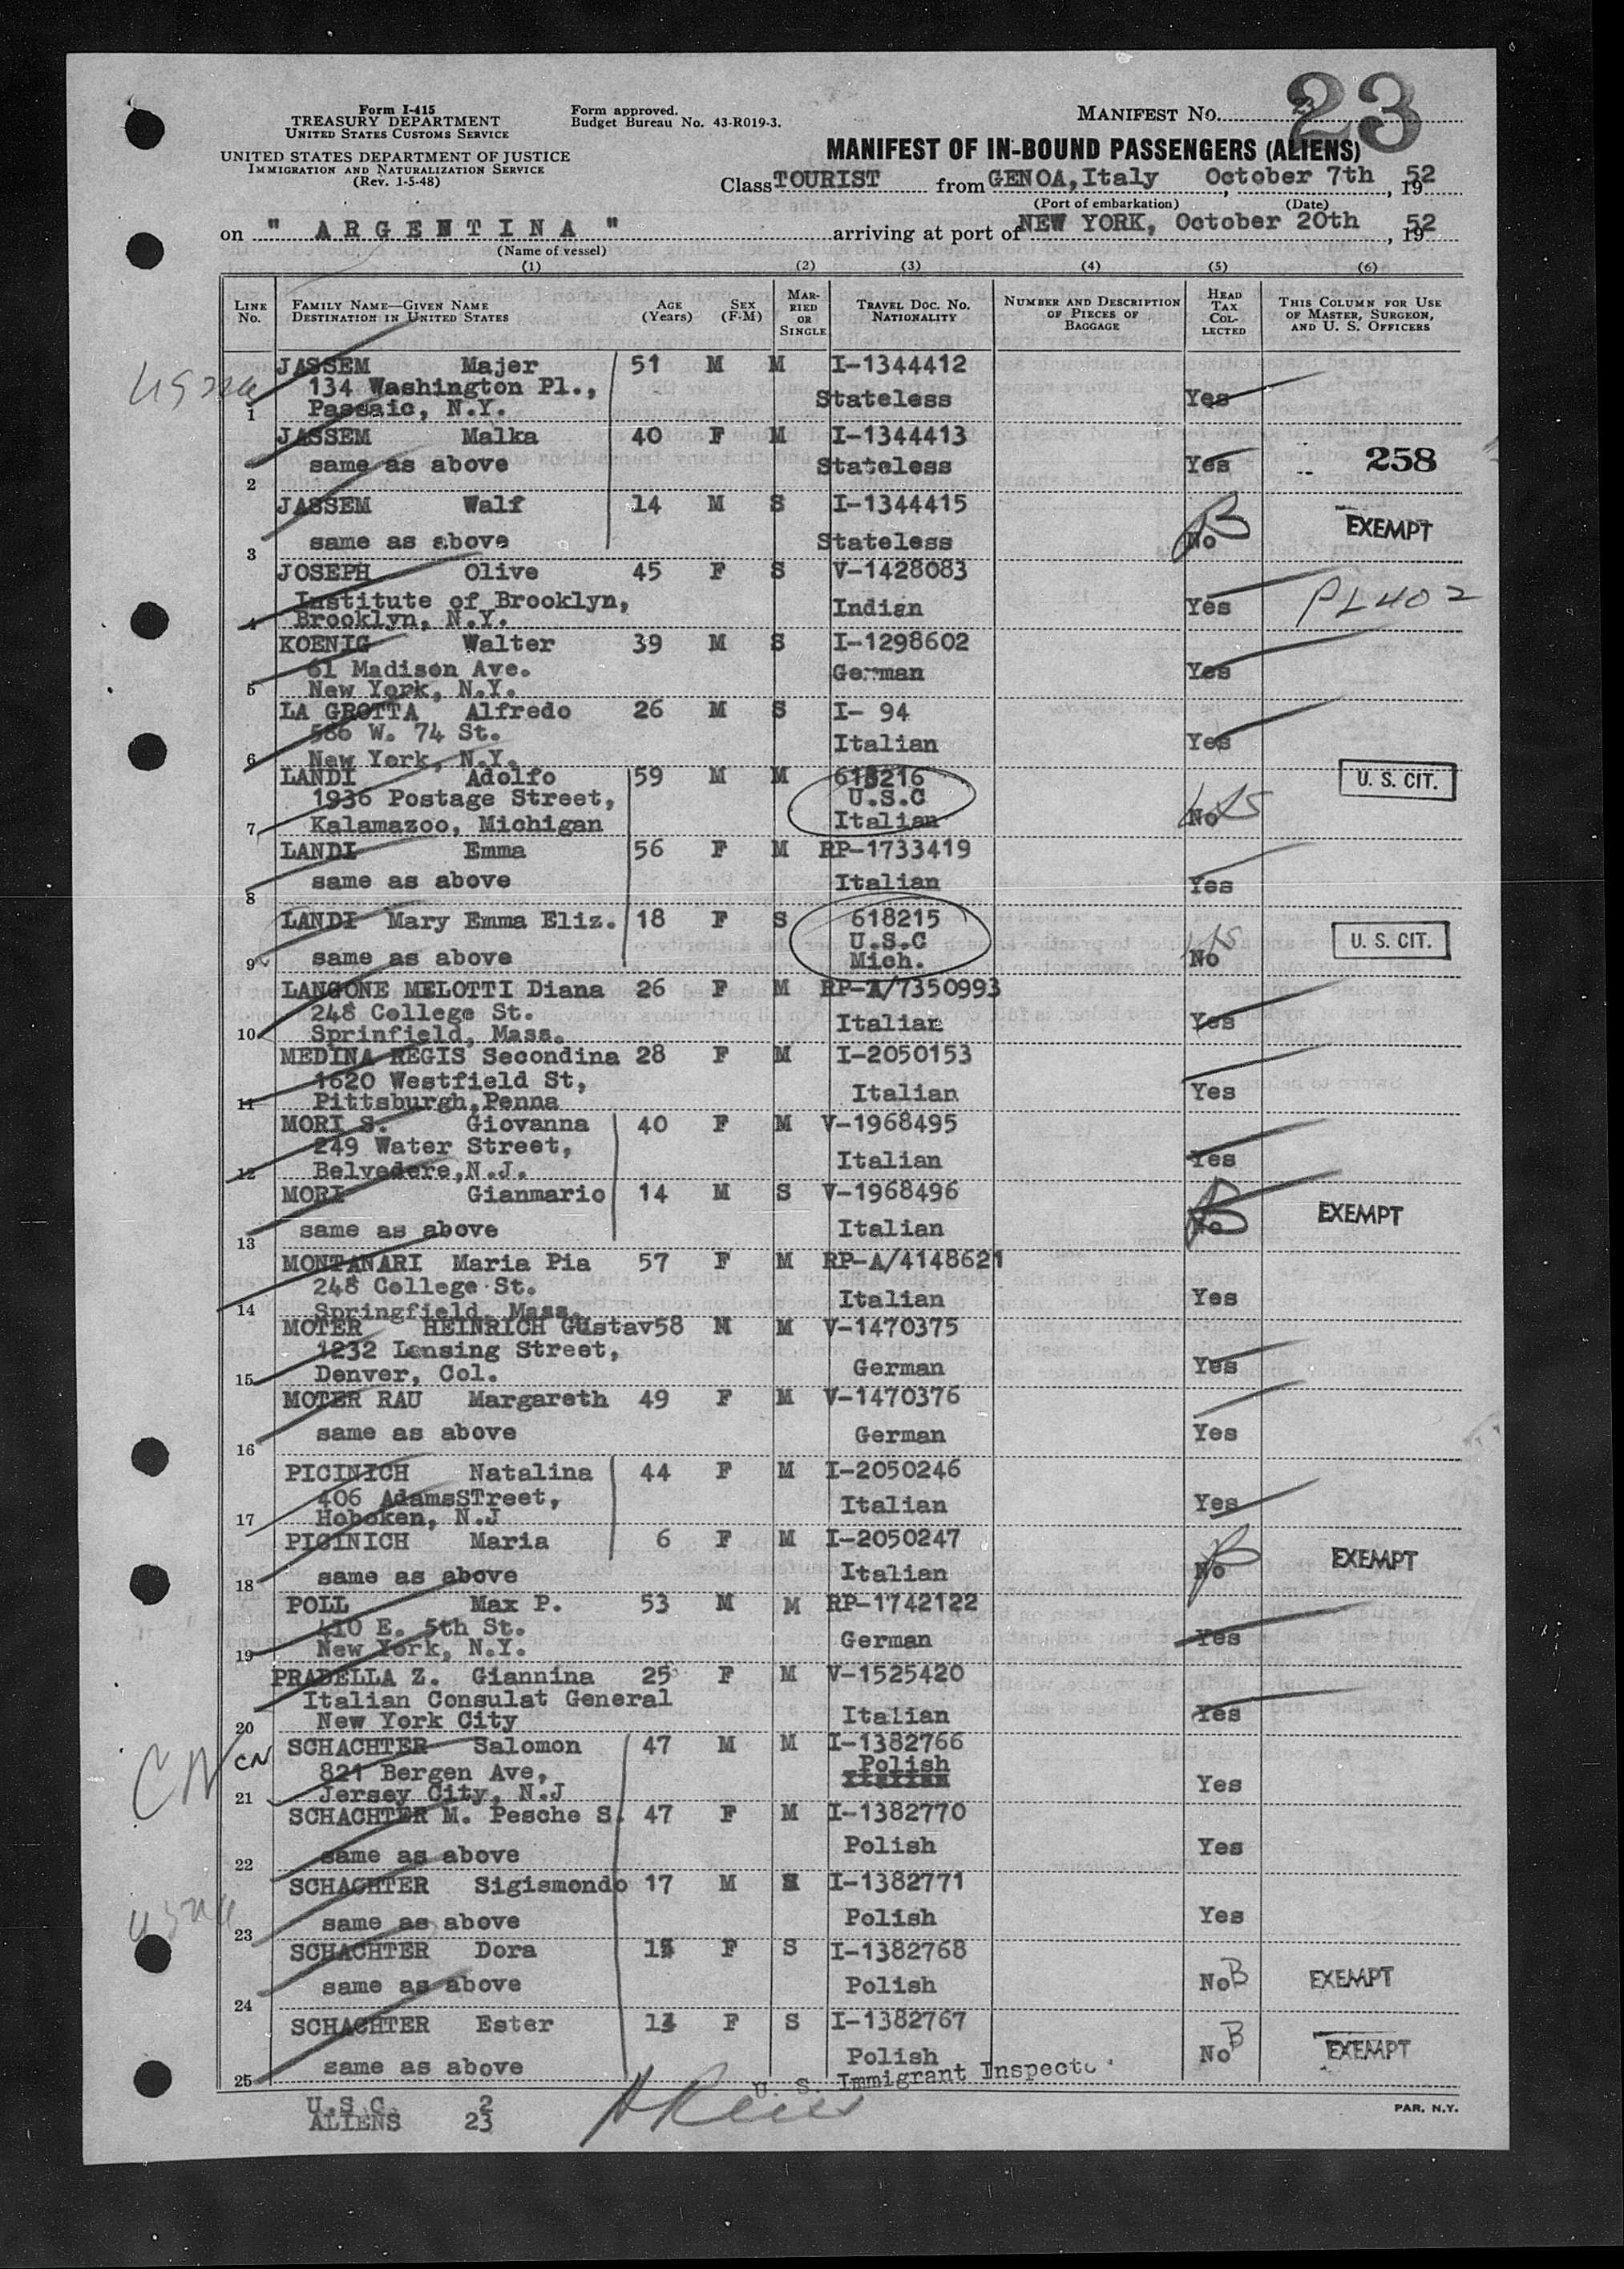 Form I-415
TREASURY DEPARTMENT
UNITED STATES CUSTOMS SERVICE
UNITED STATES DEPARTMENT OF JUSTICE
IMMIGRATION AND NATURALIZATION SERVICE
(Rev. 1-5-48)
Form approved.
Budget Bureau No. 43-R019-3.
MANIFEST NO. 23
23
MANIFEST OF IN-BOUND PASSENGERS (ALIENS)
Class TOURIST from GENOA, Italy October 7th, 1952
(Port of embarkation) (Date)
on " ARGENTINA " arriving at port of NEW YORK, October 20th, 1952
(Name of vessel)
(1) (2) (3) (4) (5) (6)
LINE No. FAMILY NAME—GIVEN NAME DESTINATION IN UNITED STATES AGE (Years) SEX (F-M) MARRIED OR SINGLE TRAVEL DOC. NO. NATIONALITY NUMBER AND DESCRIPTION OF PIECES OF BAGGAGE HEAD TAX COLLECTED THIS COLUMN FOR USE OF MASTER, SURGEON, AND U. S. OFFICERS
JASSEM Majer 51 M M I-1344412
134 Washington Pl.,
1 Passaic, N.Y. Stateless Yes
JASSEM Malka 40 F M I-1344413
2 same as above Stateless Yes 258
JASSEM Walf 14 M S I-1344415
3 same as above Stateless No EXEMPT
JOSEPH Olive 45 F S V-1428083
Institute of Brooklyn, Indian Yes PL 402
4 Brooklyn, N.Y.
KOENIG Walter 39 M S I-1298602
61 Madison Ave. German Yes
5 New York, N.Y.
LA GROTTA Alfredo 26 M S I- 94
586 W. 74 St. Italian Yes
6 New York, N.Y.
LANDI Adolfo 59 M M 618216 U. S. CIT.
1936 Postage Street, U.S.C
7 Kalamazoo, Michigan Italian No
LANDI Emma 56 F M RP-1733419
8 same as above Italian Yes
LANDI Mary Emma Eliz. 18 F S 618215
U.S.C U. S. CIT.
9 same as above Mich. No
LANGONE MELOTTI Diana 26 F M RP-A/7350993
248 College St. Italian Yes
10 Sprinfield, Mass.
MEDINA REGIS Secondina 28 F M I-2050153
1620 Westfield St, Italian Yes
11 Pittsburgh,Penna
MORI S. Giovanna 40 F M V-1968495
249 Water Street, Italian Yes
12 Belvedere,N.J.
MORI Gianmario 14 M S V-1968496
13 same as above Italian No EXEMPT
MONTANARI Maria Pia 57 F M RP-A/4148621
248 College St. Italian Yes
14 Springfield, Mass.
MOTER HEINRICH Gustav 58 M M V-1470375
1232 Lansing Street, German Yes
15 Denver, Col.
MOTER RAU Margareth 49 F M V-1470376
16 same as above German Yes
PICINICH Natalina 44 F M I-2050246
406 AdamsSTreet, Italian Yes
17 Hoboken, N.J
PICINICH Maria 6 F M I-2050247
18 same as above Italian No EXEMPT
POLL Max P. 53 M M RP-1742122
410 E. 5th St. German Yes
19 New York, N.Y.
PRADELLA Z. Giannina 25 F M V-1525420
Italian Consulat General Italian Yes
20 New York City
CN CN SCHACHTER Salomon 47 M M I-1382766
821 Bergen Ave, Polish
21 Jersey City, N.J Yes
SCHACHTER M. Pesche S. 47 F M I-1382770
22 same as above Polish Yes
SCHACHTER Sigismondo 17 M I-1382771
23 same as above Polish Yes
SCHACHTER Dora F S I-1382768
24 same as above Polish No B EXEMPT
SCHACHTER Ester F S I-1382767
25 same as above Polish No B EXEMPT
U. S. Immigrant Inspector
U.S.C. 2
ALIENS 23
PAR. N.Y.